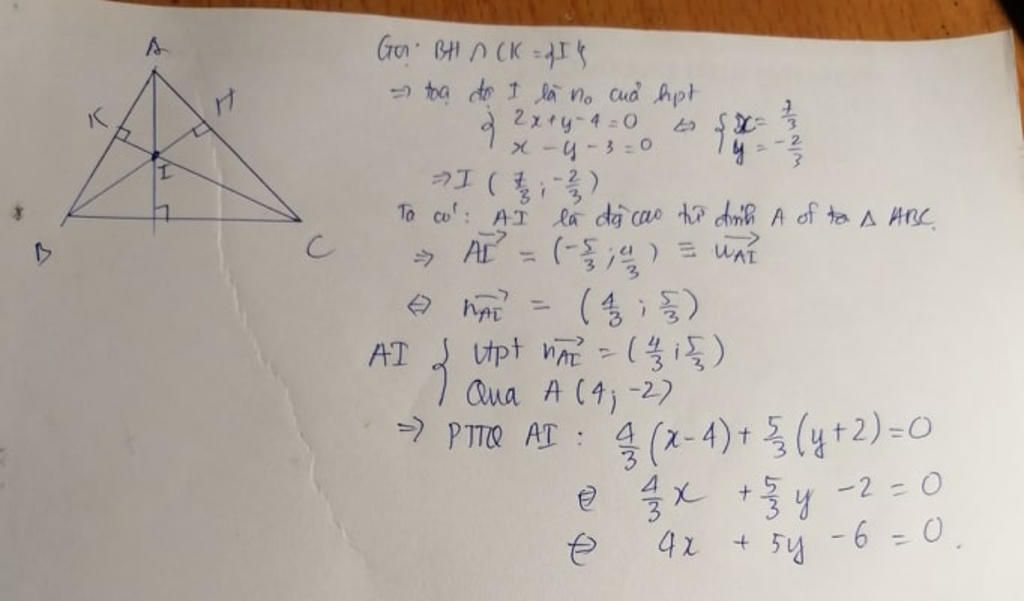 A
K
H
I
B
C
Gọi: BH ∩ CK = {I}
=> toạ độ I là n₀ của hpt
{ 2x+y-4=0
x - y - 3 = 0
<=> { x = 7/3
y = -2/3
=> I ( 7/3 ; -2/3 )
Ta có: AI là độ cao từ đỉnh A of ta Δ ABC.
=> \overrightarrow{AI} = (-5/3 ; 4/3) ≡ \overrightarrow{u_{AI}}
<=> \overrightarrow{n_{AI}} = (4/3 ; 5/3)
AI { Vtpt \overrightarrow{n_{AI}} = (4/3 ; 5/3)
Qua A (4; -2)
=> PTTQ AI : 4/3 (x-4) + 5/3 (y+2) = 0
<=> 4/3 x + 5/3 y - 2 = 0
<=> 4x + 5y - 6 = 0.